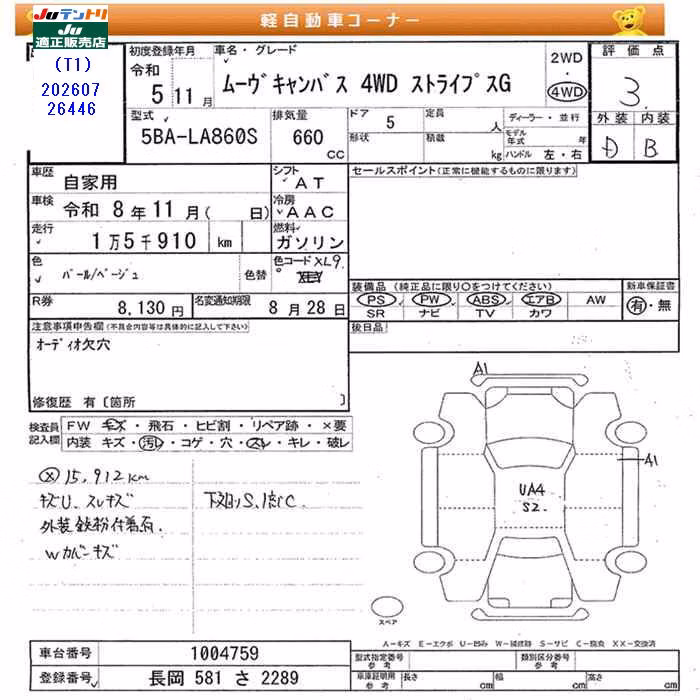 Juテントリ
適正販売店
軽自動車コーナー
(T1)
202607
26446
初度登録年月
令和
5 11 月
車名・グレード
ムーヴキャンバス 4WD ストライプスG
2WD
・
4WD
評価点
3.
外装 内装
D B
型式
5BA-LA860S
排気量
660
CC
ドア 5
形状
定員
人
積載
kg
ディーラー・並行
モデル
年式 年
ハンドル 左・右
車歴
自家用
車検
令和 8 年 11 月( 日)
走行
1万5千910 km
色
パール/ベージュ
色替
R券
8,130 円
名変通知期限
8 月 28 日
シフト
AT
冷房
AAC
燃料
ガソリン
色コード XL9.
セールスポイント(正常に機能するものに限ります)
装備品 (純正品に限り○をつけてください)
PS PW ABS エアB AW
SR ナビ TV カワ
新車保証書
有・無
後日品
注意事項申告欄(不具合内容等は具体的に記入して下さい)
オーディオ欠穴
修復歴 有〔箇所 〕
検査員
記入欄
FW キズ・飛石・ヒビ割・リペア跡・×要
内装 キズ・汚れ・コゲ・穴・スレ・キレ・破レ
15,912km
キズU. スレキズ
外装鉄粉付着有.
Wカバーキズ
下廻りS.
A1
A1
UA4
S2.
スペア
A-キズ E-エクボ U-凹み W-補修跡 S-サビ C-腐食 XX-交換済
車台番号 1004759
登録番号 長岡 581 さ 2289
型式指定番号
参考
類別区分番号
参考
車庫証明用
参考
長さ cm
幅 cm
高さ cm